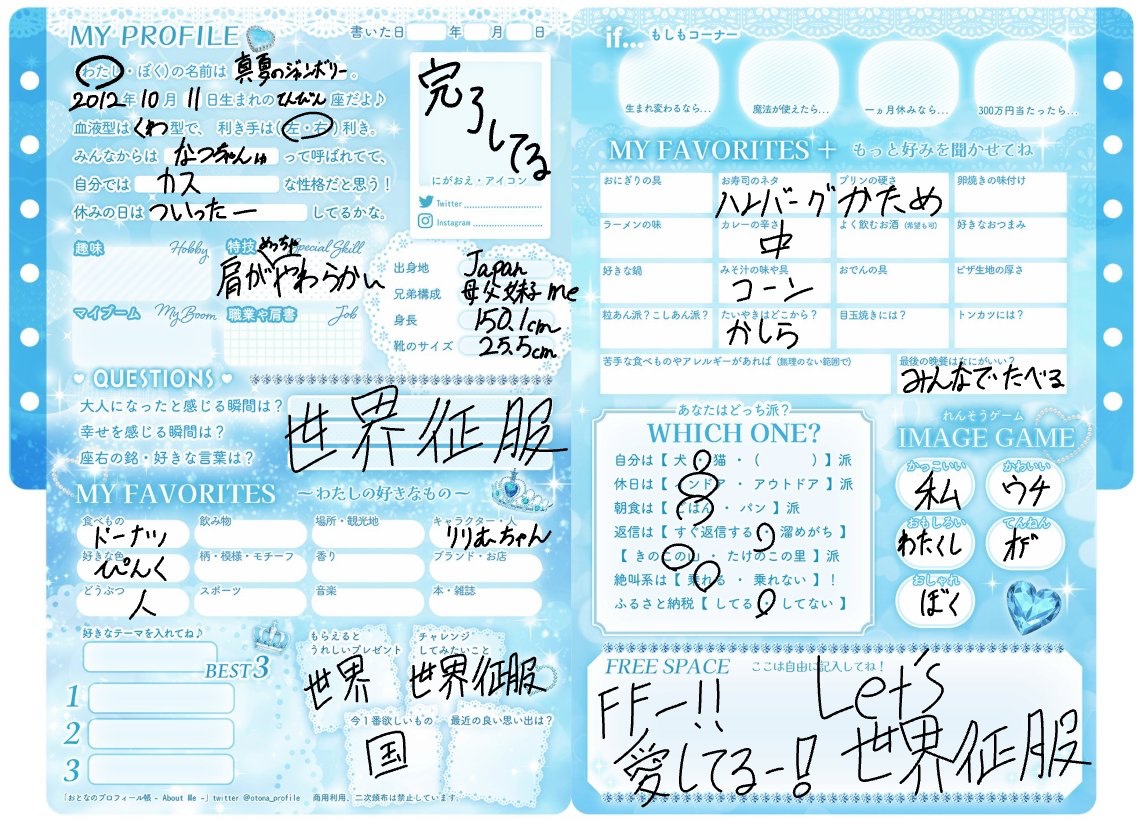 MY PROFILE
書いた日 年 月 日
(わたし・ぼく)の名前は 真夏のジャンボリー 。
2012年 10月 11日生まれの てんびん 座だよ♪
血液型は くわ 型で、利き手は(左・右)利き。
みんなからは なつちゃんゅ って呼ばれてて、
自分では カス な性格だと思う！
休みの日は ついったー してるかな。
完了してる
にがおえ・アイコン
Twitter
Instagram
趣味 Hobby
特技 Special Skill
めっちゃ
肩がやわらかい
マイブーム My Boom
職業や肩書 Job
出身地 Japan
兄弟構成 母父妹子me
身長 150.1cm
靴のサイズ 25.5cm
QUESTIONS
大人になったと感じる瞬間は？
幸せを感じる瞬間は？
座右の銘・好きな言葉は？
世界征服
MY FAVORITES ～わたしの好きなもの～
食べもの ドーナツ
飲み物
場所・観光地
キャラクター・人 りりむちゃん
好きな色 ぴんく
柄・模様・モチーフ
香り
ブランド・お店
どうぶつ 人
スポーツ
音楽
本・雑誌
好きなテーマを入れてね♪
BEST3
1
2
3
もらえるとうれしいプレゼント
世界
チャレンジしてみたいこと
世界征服
今1番欲しいもの
国
最近の良い思い出は？
「おとなのプロフィール帳 - About Me -」twitter @otona_profile 商用利用、二次頒布は禁止しています。
if... もしもコーナー
生まれ変わるなら...
魔法が使えたら...
一ヵ月休みなら...
300万円当たったら...
MY FAVORITES + もっと好みを聞かせてね
おにぎりの具
お寿司のネタ ハンバーグ
プリンの硬さ かため
卵焼きの味付け
ラーメンの味
カレーの辛さ 中
よく飲むお酒 (希望も可)
好きなおつまみ
好きな鍋
みそ汁の味や具 コーン
おでんの具
ピザ生地の厚さ
粒あん派？こしあん派？
たいやきはどこから？ かしら
目玉焼きには？
トンカツには？
苦手な食べものやアレルギーがあれば (無理のない範囲で)
最後の晩餐はなにがいい？ みんなでたべる
あなたはどっち派？
WHICH ONE?
自分は【 犬 ・ 猫 ・ ( ) 】派
休日は【 インドア ・ アウトドア 】派
朝食は【 ごはん ・ パン 】派
返信は【 すぐ返信する ・ 溜めがち 】
【 きのこの山 ・ たけのこの里 】派
絶叫系は【 乗れる ・ 乗れない 】！
ふるさと納税【 してる ・ してない 】
れんそうゲーム
IMAGE GAME
かっこいい 私
かわいい ウチ
おもしろい わたくし
てんねん オデ
おしゃれ ぼく
FREE SPACE ここは自由に記入してね！
FFー!!
愛してるー!
Let's
世界征服